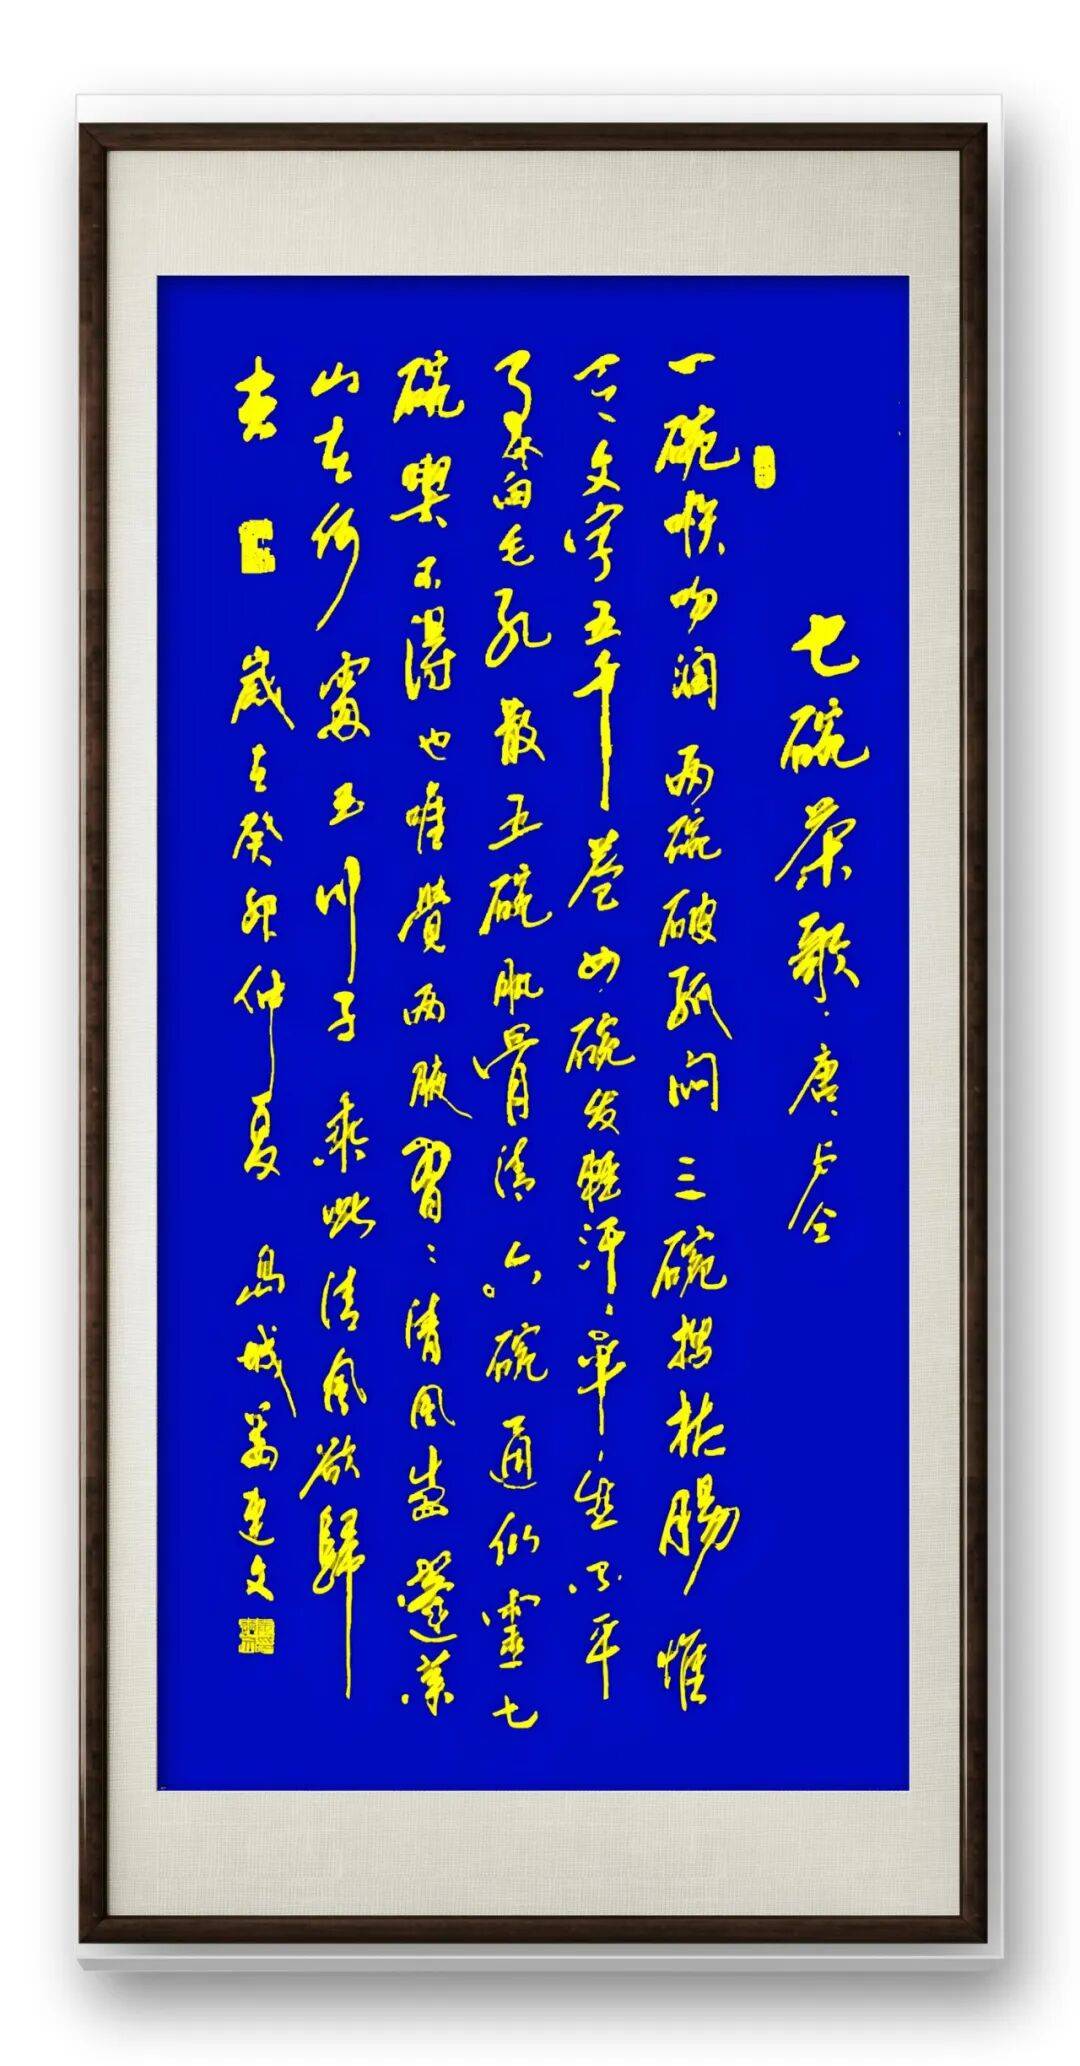 七碗茶歌 唐 卢仝
一碗喉吻润两碗破孤闷三碗搜枯肠惟
有文字五千卷四碗发轻汗平生不平
事尽向毛孔散五碗肌骨清六碗通仙靈七
碗喫不得也唯覺两腋習々清风生蓬莱
山在何處玉川子乘此清风欲歸
去 歲在癸卯仲夏 岛城姜建文